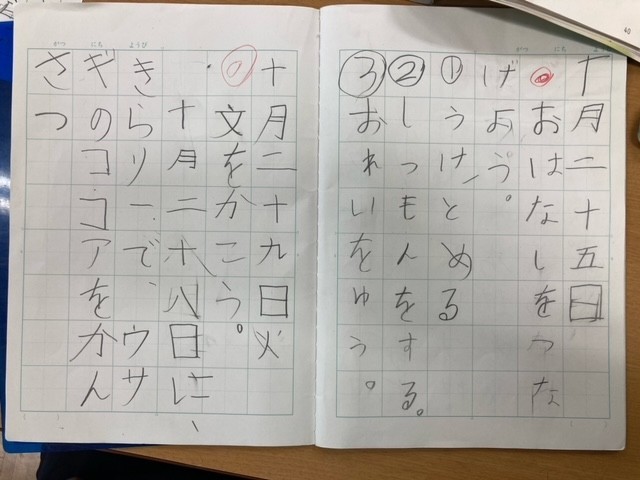 十月二十五日
◎おはなしをつな
げよう。
①うけとめる
②しつもんをする。
③おれいをゆう。
十月二十九日火
◎文をかこう。
十月二十八日に、
きらりーで、ウサ
ギのココアをかん
さつ
がつ にち ようび